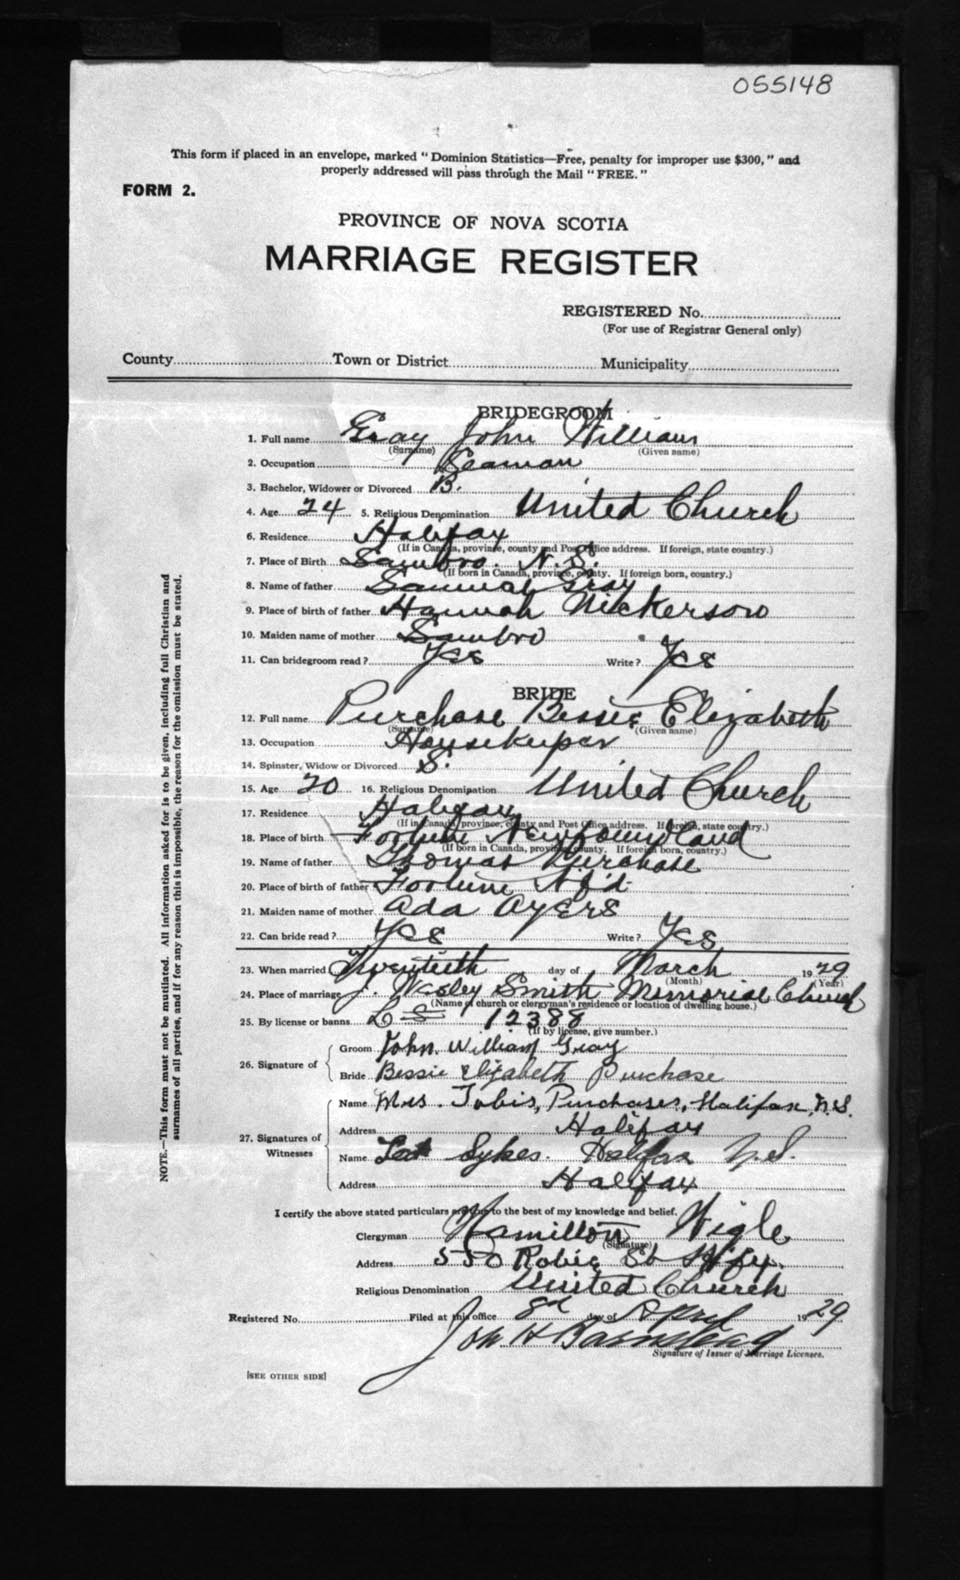 055148
This form if placed in an envelope, marked "Dominion Statistics—Free, penalty for improper use $300," and
properly addressed will pass through the Mail "FREE."
FORM 2.
PROVINCE OF NOVA SCOTIA
MARRIAGE REGISTER
REGISTERED No.
(For use of Registrar General only)
County Town or District Municipality
BRIDEGROOM
1. Full name Gray John William
(Surname) (Given name)
2. Occupation Seaman
3. Bachelor, Widower or Divorced B.
4. Age 24 5. Religious Denomination United Church
6. Residence Halifax
(If in Canada, province, county and Post Office address. If foreign, state country.)
7. Place of Birth Sambro. N.S.
(If born in Canada, province, county. If foreign born, country.)
8. Name of father Samual Gray
9. Place of birth of father Hannah Nickerson
10. Maiden name of mother Sambro
11. Can bridegroom read? Yes Write? Yes
BRIDE
12. Full name Purchase Bessie Elizabeth
(Surname) (Given name)
13. Occupation Housekeeper
14. Spinster, Widow or Divorced S.
15. Age 20 16. Religious Denomination United Church
17. Residence Halifax
(If in Canada, province, county and Post Office address. If foreign, state country.)
18. Place of birth Fortune Newfoundland
(If born in Canada, province, county. If foreign born, country.)
19. Name of father Thomas Purchase
20. Place of birth of father Fortune Nf'd
21. Maiden name of mother Ada Ayers
22. Can bride read? Yes Write? Yes
23. When married Twentieth day of March 1929
(Month) (Year)
24. Place of marriage J. Wesley Smith Memorial Church
(Name of church or clergyman's residence or location of dwelling house.)
25. By license or banns 12388
(If by license, give number.)
26. Signature of
Groom John William Gray
Bride Bessie Elizabeth Purchase
27. Signatures of Witnesses
Name Mrs. Purchase, Halifax, N.S.
Address Halifax
Name Sykes. Halifax N.S.
Address Halifax
I certify the above stated particulars are true to the best of my knowledge and belief.
Clergyman Hamilton Wigle
(Signature)
Address 550 Robie St Hfx.
Religious Denomination United Church
Registered No. Filed at this office 8d day of April 1929
Jon H Barnstead
Signature of Issuer of Marriage Licenses.
[SEE OTHER SIDE]
NOTE.—This form must not be mutilated. All information asked for is to be given, including full Christian and
surnames of all parties, and if for any reason this is impossible, the reason for the omission must be stated.